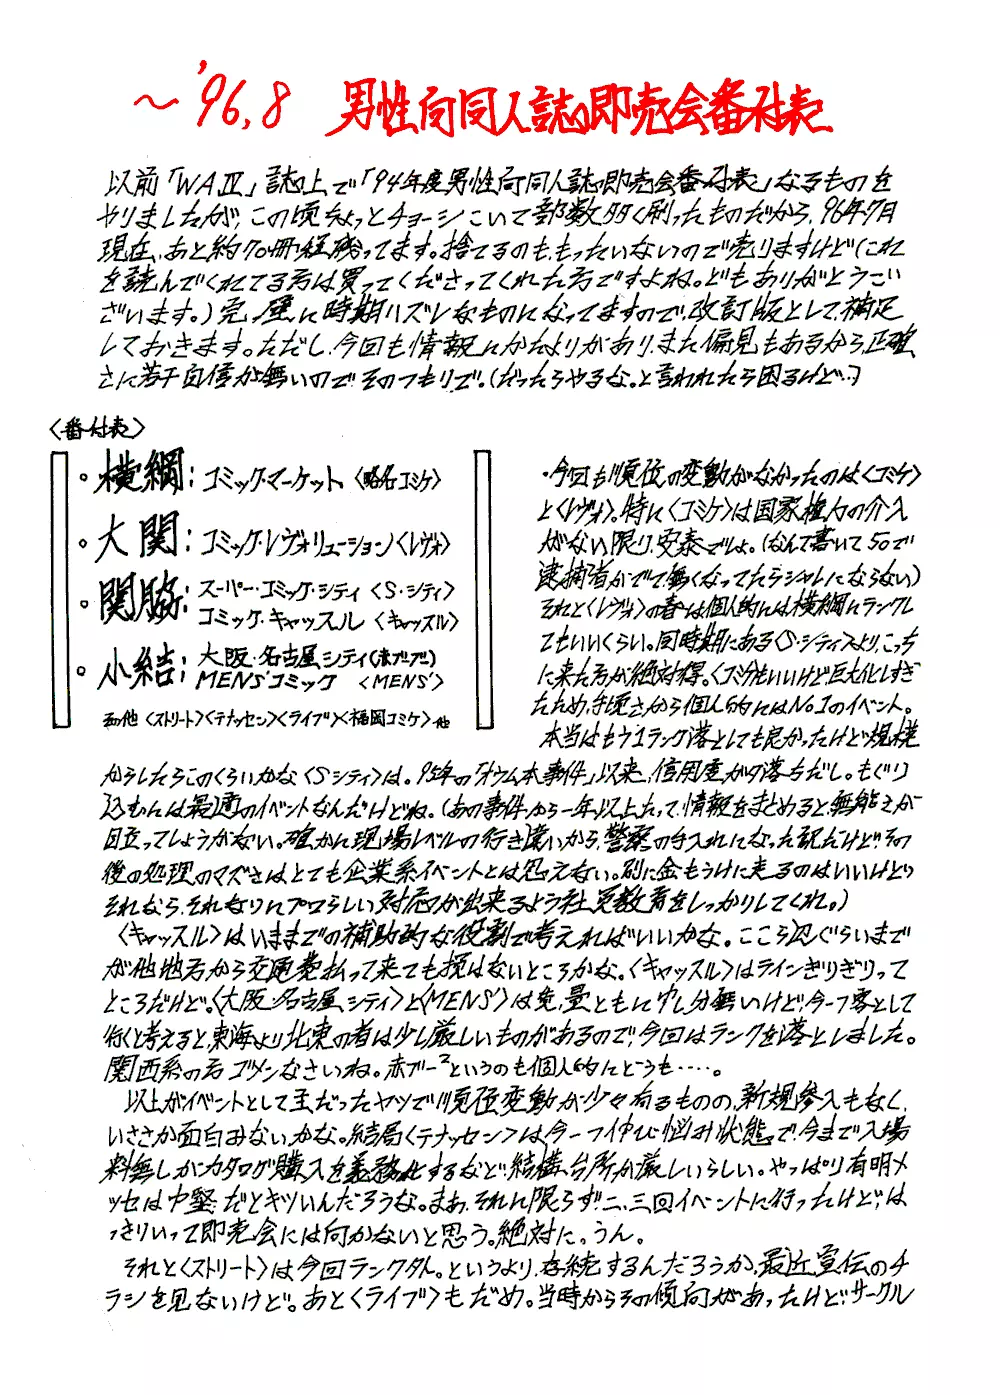 ～'96.8 男性向同人誌即売会番付表
以前「WAⅣ」誌上で「94年度男性向同人誌即売会番付表」なるものを
やりましたが、この頃ちょっとチョーシこいて部数多く刷ったものだから、96年7月
現在、あと約70冊程残ってます。捨てるのももったいないので売りますけど(これ
を読んでくれてる方は買ってくださってくれた方ですよね。どもありがとうご
ざいます。)完璧に時期ハズレなものになってますので、改訂版として補足
しておきます。ただし、今回も情報にかたよりがあり、また偏見もあるから正確
さに若干自信が無いのでそのつもりで。(だったらやるな。と言われたら困るけど…)
〈番付表〉
・横綱：コミック・マーケット〈略名コミケ〉
・大関：コミック・レヴォリューション〈レヴォ〉
・関脇：スーパー・コミック・シティ〈S・シティ〉
コミック・キャッスル〈キャッスル〉
・小結：大阪・名古屋シティ(赤ブーブー)
MENS'コミック〈MENS'〉
その他〈ストリート〉〈テナッセン〉〈ライブ〉〈福岡コミケ〉他
・今回も順位の変動がなかったのは〈コミケ〉
と〈レヴォ〉。特に〈コミケ〉は国家権力の介入
がない限り、安泰でしょ。(なんて書いて50で
逮捕者がでて無くなってたらシャレにならない)
それと〈レヴォ〉の春は個人的には横綱にランクし
てもいいくらい。同時期にある〈S・シティ〉より、こっち
に来た方が絶対得。〈コミケ〉もいいけど巨大化しすぎ
たため、手頃さから個人的にはNo.1のイベント。
本当はもう1ランク落としても良かったけど規模
からしたらこのくらいかな〈Sシティ〉は。95年の「オウム本事件」以来、信用度がた落ちだし。もぐり
込むんには最適のイベントなんだけどね。(あの事件から一年以上たって、情報をまとめると無能さが
目立ってしょうがない。確かに現場レベルの行き違いから、警察の手入れになった訳だけど、その
後の処理のマズさはとても企業系イベントとは思えない。別に金もうけに走るのはいいけど
それなら、それなりにプロらしい対応が出来るよう社員教育をしっかりしてくれ。)
〈キャッスル〉はいままでの補助的な役割で考えればいいかな。ここら辺ぐらいまで
が他地方から交通費払って来ても損はないところかな。〈キャッスル〉はラインぎりぎりって
ところだけど。〈大阪・名古屋シティ〉と〈MENS'〉は質、量ともに申し分無いけど、今一つ客として
行くと考えると、東海より北東の者は少し厳しいものがあるので、今回はランクを落としました。
関西系の方ゴメンなさいね。赤ブー²というのも個人的にどうも……。
以上がイベントとして主だったヤツで順位変動が少々有るものの、新規参入もなく、
いささか面白みないかな。結局〈テナッセン〉は今一つ伸び悩み状態で、今まで入場
料無しがカタログ購入を義務化するなど、結構、台所が厳しいらしい。やっぱり有明メ
ッセは中堅だとキツいんだろうな。まあ、それに限らず二、三回イベントに行ったけど、は
っきりいって即売会には向かないと思う。絶対に。うん。
それと〈ストリート〉は今回ランク外。というより、存続するんだろうか、最近宣伝のチ
ラシを見ないけど。あと〈ライブ〉もだめ。当時からその傾向があったけど、サークル